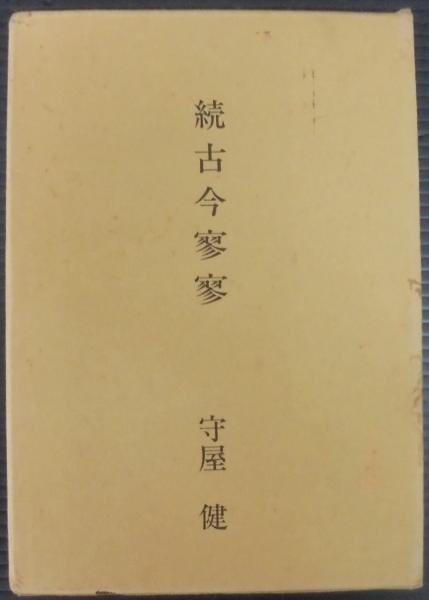 続古今寥寥
守屋健